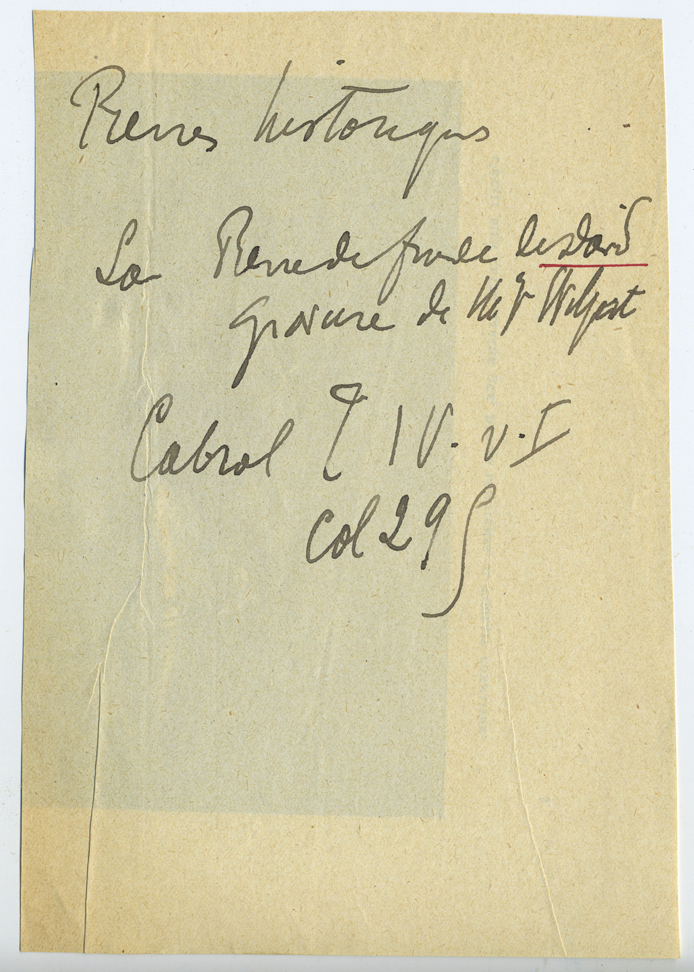 Pierres historiques
La Pierre de fronde de David
gravure de Mgr Wilpert
Cabrol T IV. v. I
col 295